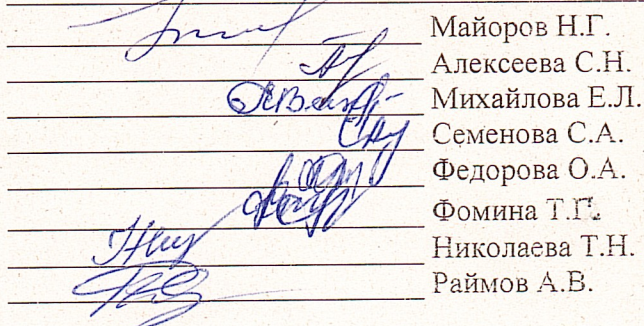 Майоров Н.Г.
Алексеева С.Н.
Михайлова Е.Л.
Семенова С.А.
Федорова О.А.
Фомина Т.П.
Николаева Т.Н.
Раймов А.В.